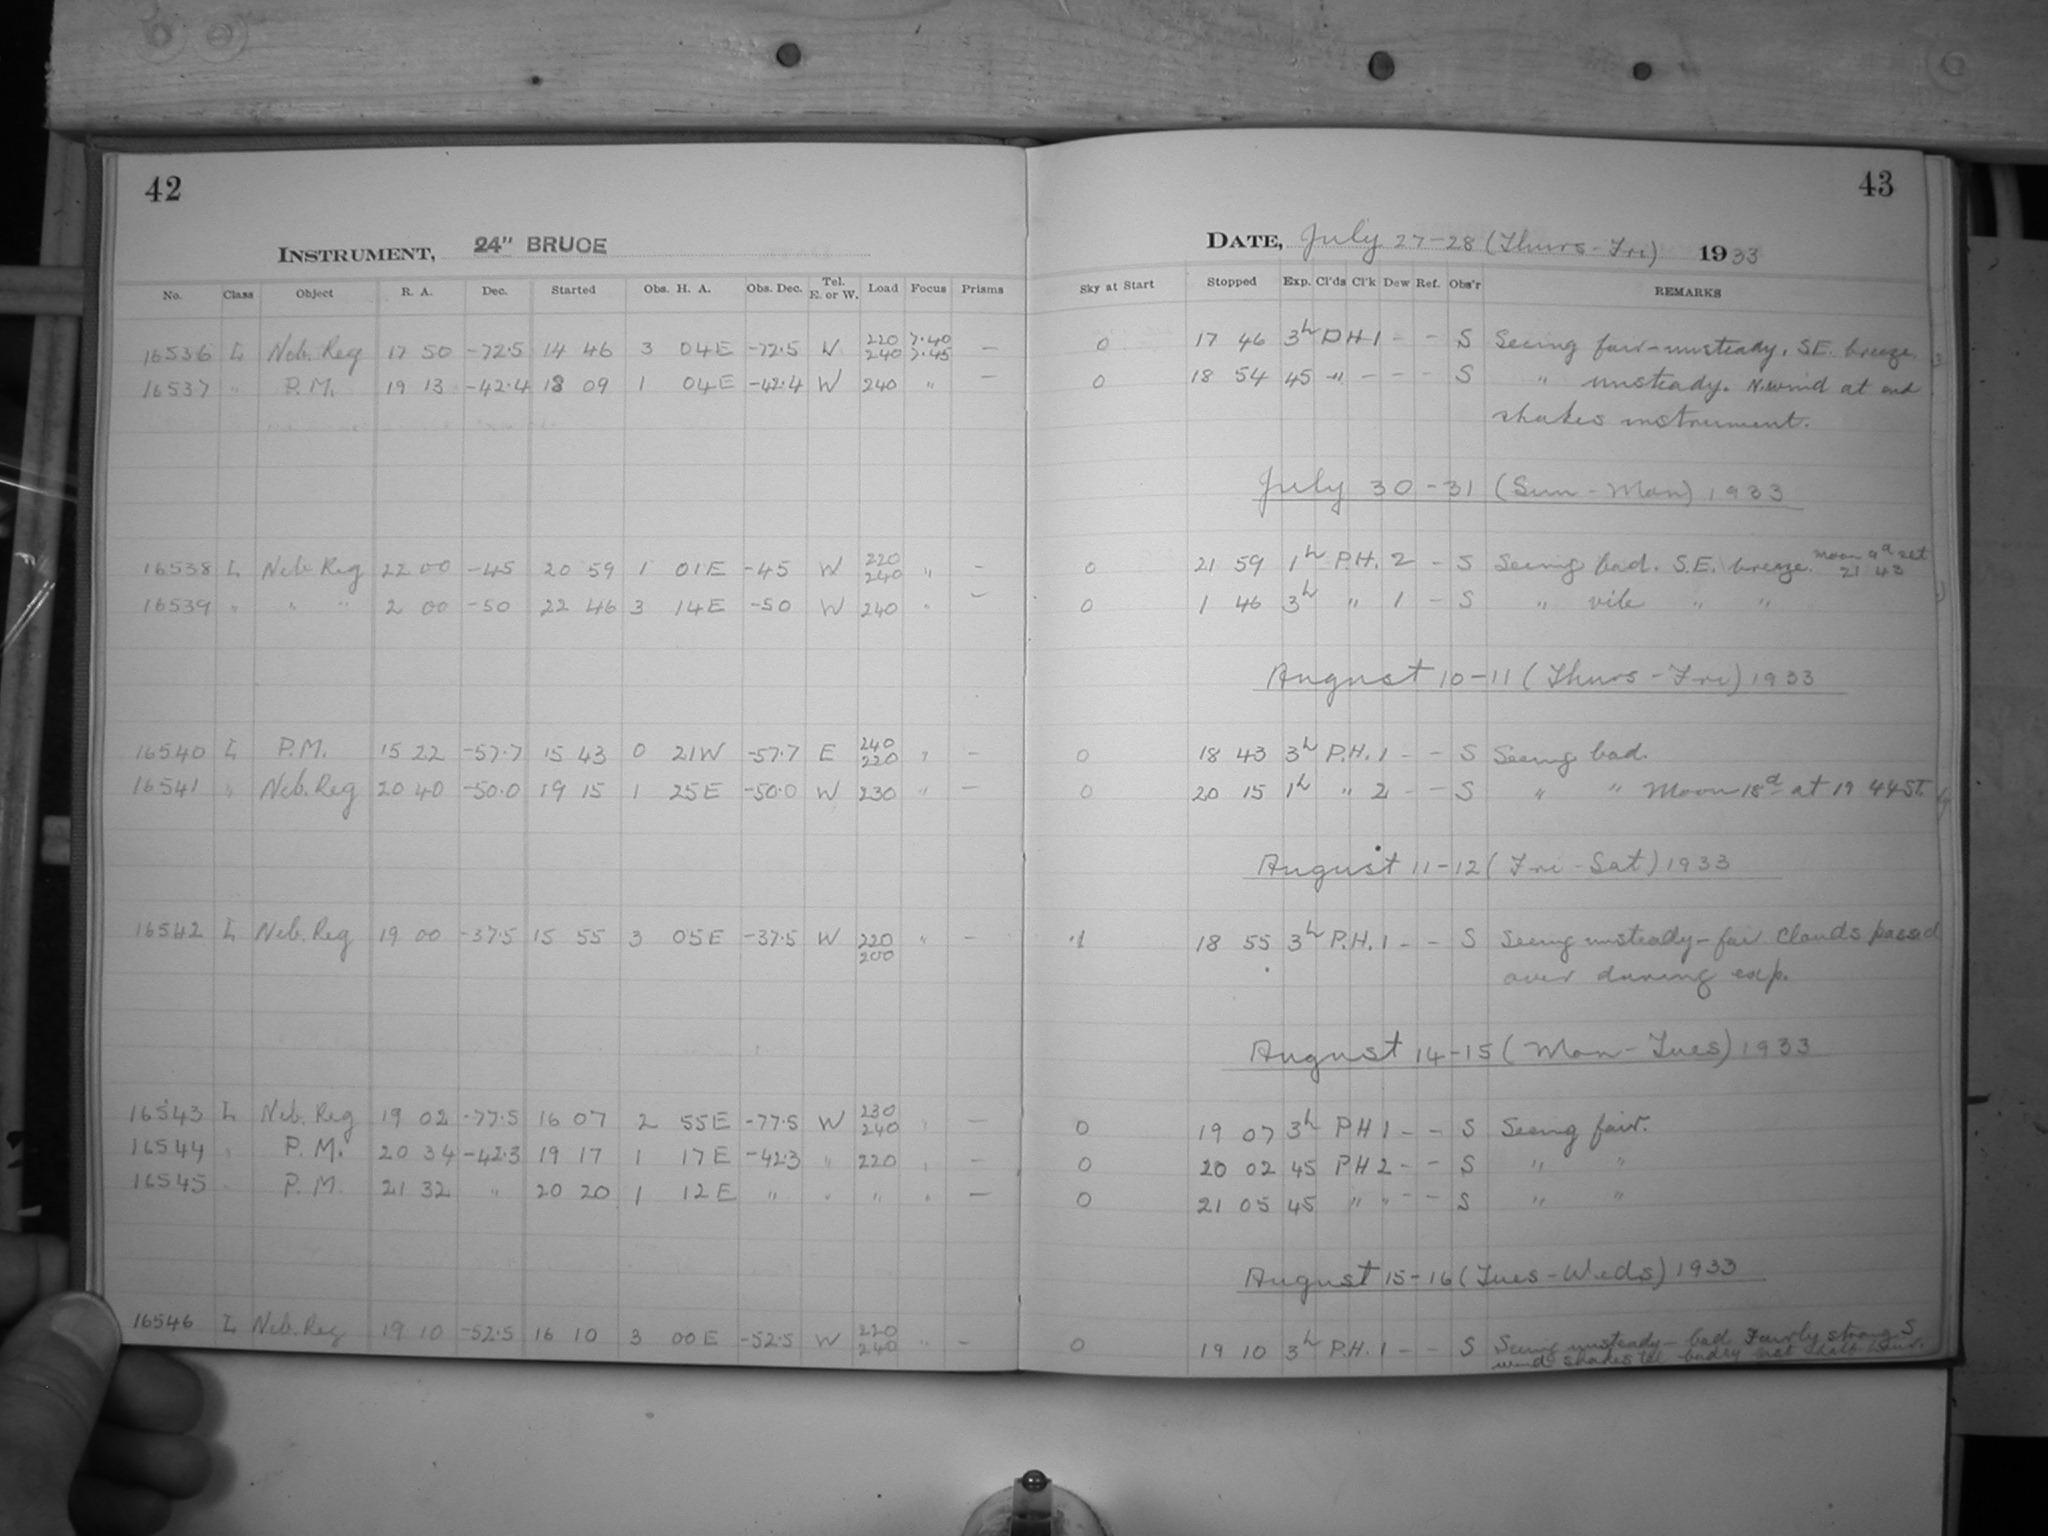 42
INSTRUMENT, 24" BRUCE
No. Class Object R. A. Dec. Started Obs. H. A. Obs. Dec. Tel. E. or W. Load Focus Prisms
16536 L Neb. Reg 17 50 -72.5 14 46 3 04E -72.5 W 220 240 7.40 7.45 —
16537 " P.M. 19 13 -42.4 18 09 1 04E -42.4 W 240 " —
16538 L Neb Reg 22 00 -45 20 59 1 01E -45 W 220 240 " —
16539 " " " 2 00 -50 22 46 3 14E -50 W 240 " —
16540 L P.M. 15 22 -57.7 15 43 0 21W -57.7 E 240 220 " —
16541 " Neb. Reg 20 40 -50.0 19 15 1 25E -50.0 W 230 " —
16542 L Neb. Reg 19 00 -37.5 15 55 3 05E -37.5 W 220 200 " —
16543 L Neb. Reg 19 02 -77.5 16 07 2 55E -77.5 W 230 240 " —
16544 " P.M. 20 34 -42.3 19 17 1 17E -42.3 " 220 " —
16545 P.M. 21 32 " 20 20 1 12E " " " " —
16546 L Neb. Reg 19 10 -52.5 16 10 3 00E -52.5 W 220 240 " —
43
DATE, July 27-28 (Thurs-Fri) 1933
Sky at Start Stopped Exp. Cl'ds Cl'k Dew Ref. Obs'r REMARKS
0 17 46 3h P.H 1 - - S Seeing fair-unsteady. S.E. breeze.
0 18 54 45 " - - - S " unsteady. N. wind at end
shakes instrument.
July 30-31 (Sun-Mon) 1933
0 21 59 1h P.H. 2 - S Seeing bad. S.E. breeze. Moon 9d set 21 43
0 1 46 3h " 1 - S " vile " "
August 10-11 (Thurs-Fri) 1933
0 18 43 3h P.H. 1 - - S Seeing bad.
0 20 15 1h " 2 - - S " " Moon 18d at 19 44 ST.
August 11-12 (Fri-Sat) 1933
.1 18 55 3h P.H. 1 - - S Seeing unsteady-fair Clouds passed
over during exp.
August 14-15 (Mon-Tues) 1933
0 19 07 3h PH 1 - - S Seeing fair.
0 20 02 45 PH 2 - - S " "
0 21 05 45 " " - - S " "
August 15-16 (Tues-Weds) 1933
0 19 10 3h P.H. 1 - - S Seeing unsteady-bad Fairly strong S
wind shakes tel badly